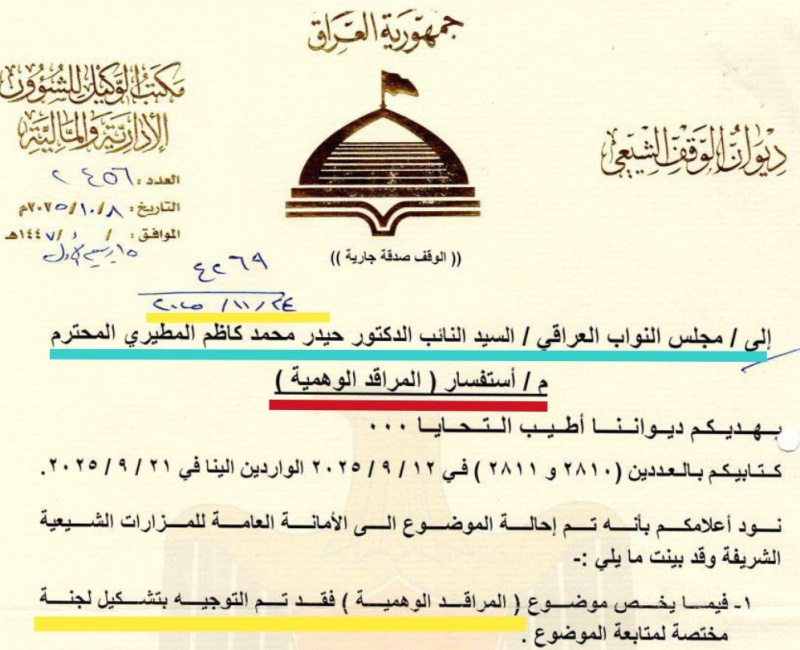 جمهورية العراق
ديوان الوقف الشيعي
مكتب الوكيل للشؤون
الإدارية والمالية
العدد : ٢٤٥٦
التاريخ : ٢٠٢٥/١٠/٨م
الموافق : / / ١٤٤٧هـ
(( الوقف صدقة جارية ))
٤٢٦٩
٢٠٢٥/١١/٢٤
إلى / مجلس النواب العراقي / السيد النائب الدكتور حيدر محمد كاظم المطيري المحترم
م / أستفسار ( المراقد الوهمية )
يهديكم ديواننا أطيب التحايا ٠٠٠
كتابيكم بالعددين (٢٨١٠ و ٢٨١١ ) في ١٢ / ٩ / ٢٠٢٥ الواردين الينا في ٢١ / ٩ / ٢٠٢٥.
نود أعلامكم بأنه تم إحالة الموضوع الى الأمانة العامة للمزارات الشيعية
الشريفة وقد بينت ما يلي :-
١- فيما يخص موضوع ( المراقد الوهمية ) فقد تم التوجيه بتشكيل لجنة
مختصة لمتابعة الموضوع .